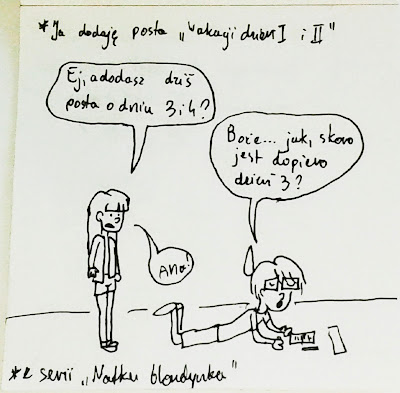 *Ja dodaję posta „Wakacji dzień I i II"
Ej, a dodasz dziś
posta o dniu 3 i 4?
Boże... jak, skoro
jest dopiero
dzień 3?
Ano!
*z serii „Natka blondynka"